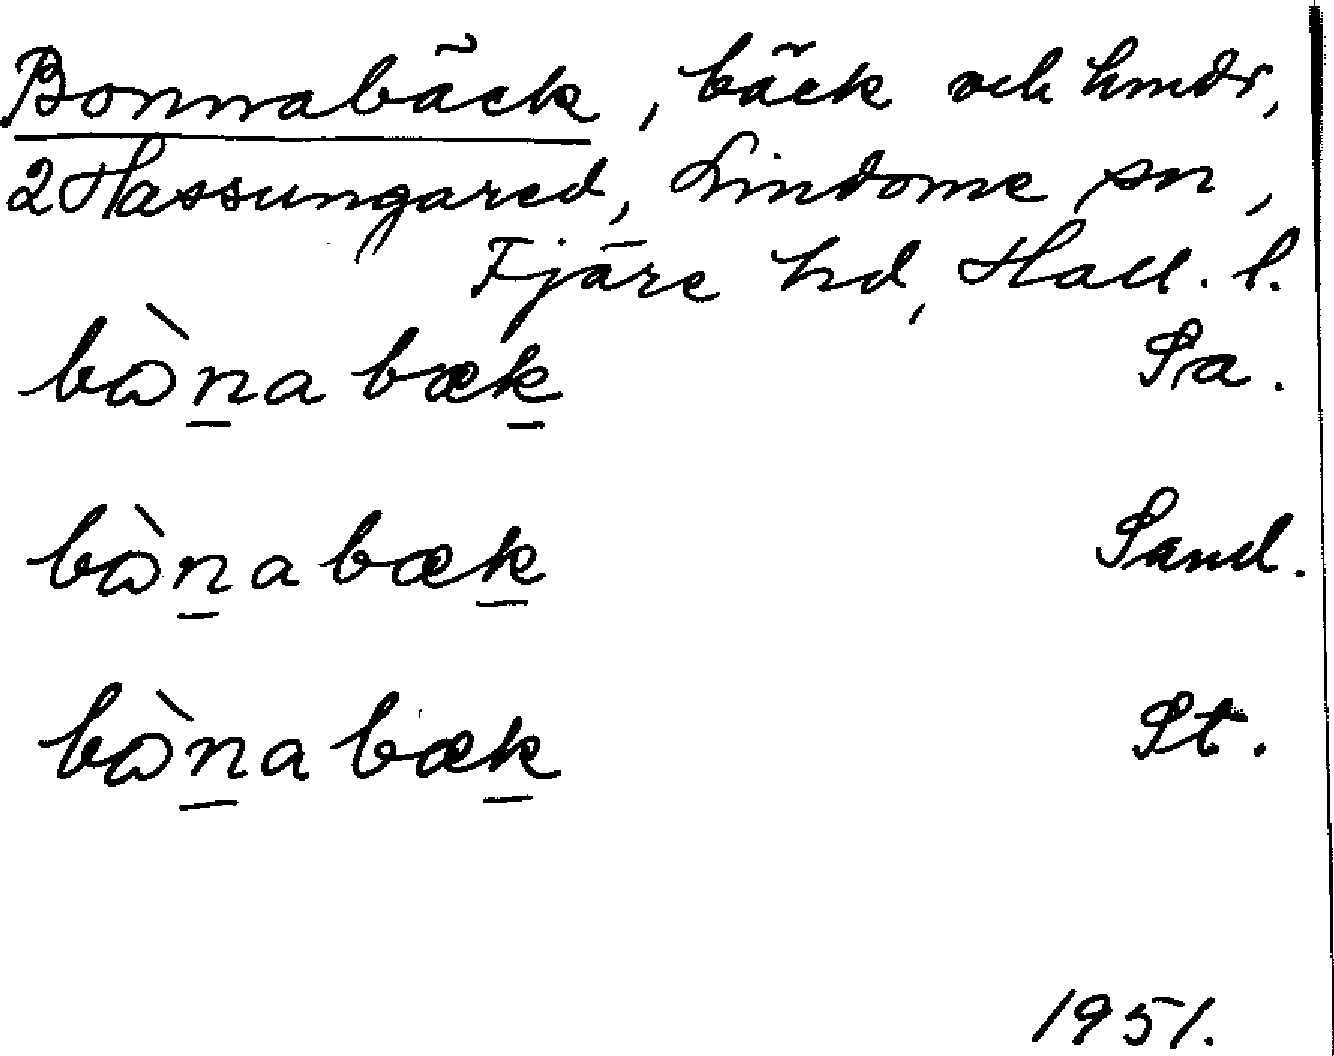 Bonnabäck, bäck och hmdr,
2 Hassungared, Lindome sn,
Fjäre hd, Hall. l.
bὼn̲abæk̲ Pa.
bὼn̲abæk̲ Pand.
bὼn̲abæk̲ Pt.
1951.